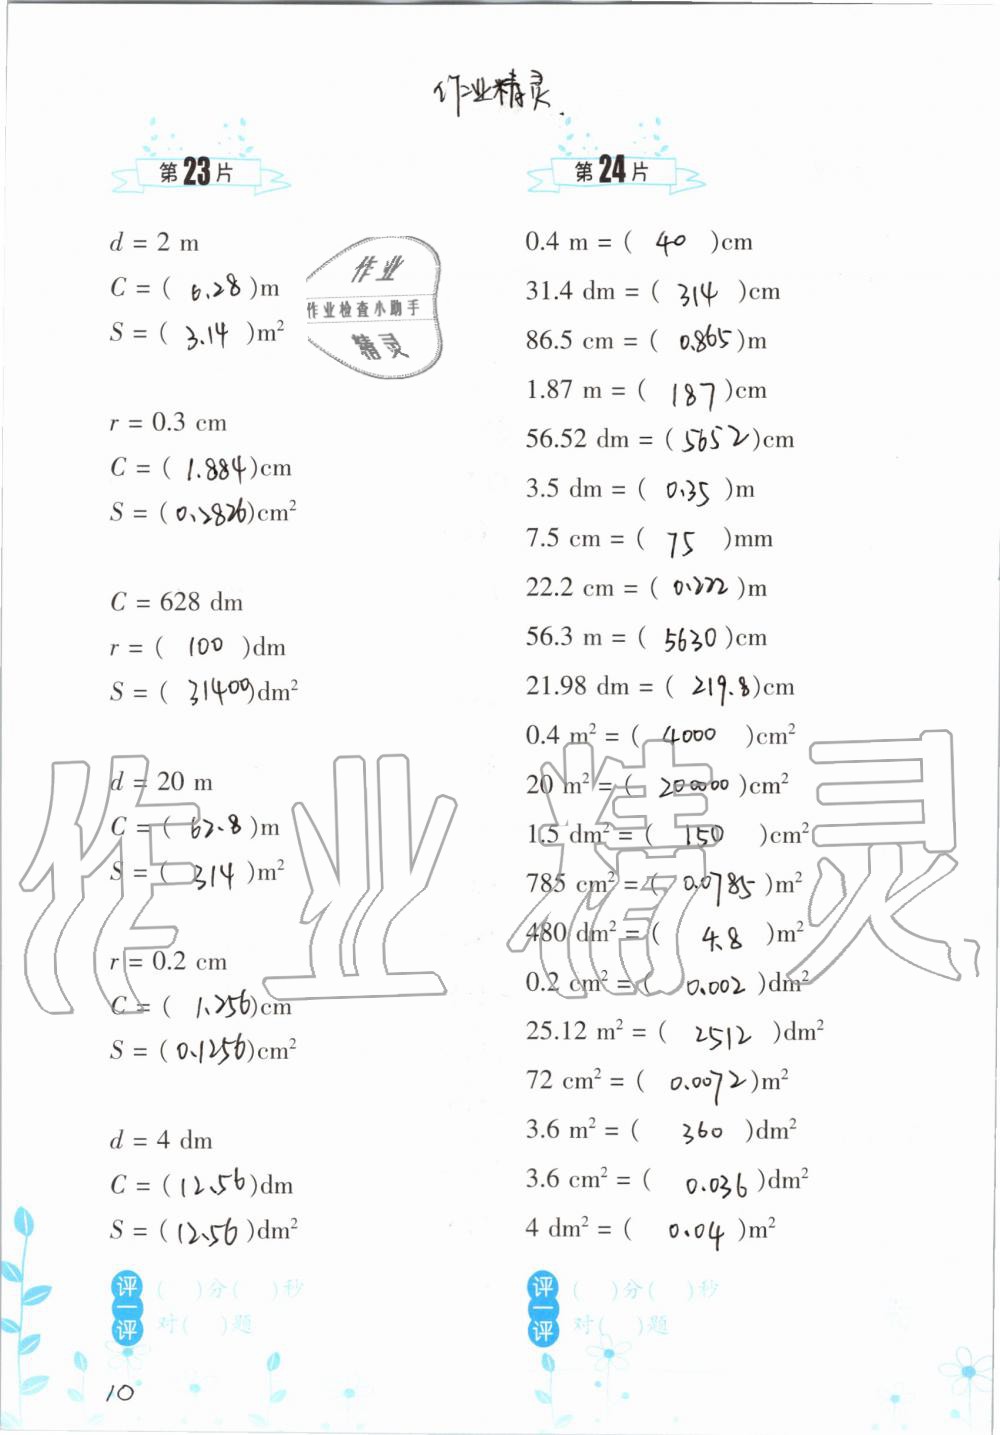 作业精灵
第23片
d = 2 m
C = ( 6.28 )m
S = ( 3.14 )m²
r = 0.3 cm
C = ( 1.884 )cm
S = ( 0.2826 )cm²
C = 628 dm
r = ( 100 )dm
S = ( 31400 )dm²
d = 20 m
C = ( 62.8 )m
S = ( 314 )m²
r = 0.2 cm
C = ( 1.256 )cm
S = ( 0.1256 )cm²
d = 4 dm
C = ( 12.56 )dm
S = ( 12.56 )dm²
评一评
( )分( )秒
对( )题
10
作业
作业检查小助手
精灵
第24片
0.4 m = ( 40 )cm
31.4 dm = ( 314 )cm
86.5 cm = ( 0.865 )m
1.87 m = ( 187 )cm
56.52 dm = ( 5652 )cm
3.5 dm = ( 0.35 )m
7.5 cm = ( 75 )mm
22.2 cm = ( 0.222 )m
56.3 m = ( 5630 )cm
21.98 dm = ( 219.8 )cm
0.4 m² = ( 4000 )cm²
20 m² = ( 200000 )cm²
1.5 dm² = ( 150 )cm²
785 cm² = ( 0.0785 )m²
480 dm² = ( 4.8 )m²
0.2 cm² = ( 0.002 )dm²
25.12 m² = ( 2512 )dm²
72 cm² = ( 0.0072 )m²
3.6 m² = ( 360 )dm²
3.6 cm² = ( 0.036 )dm²
4 dm² = ( 0.04 )m²
评一评
( )分( )秒
对( )题
作业精灵